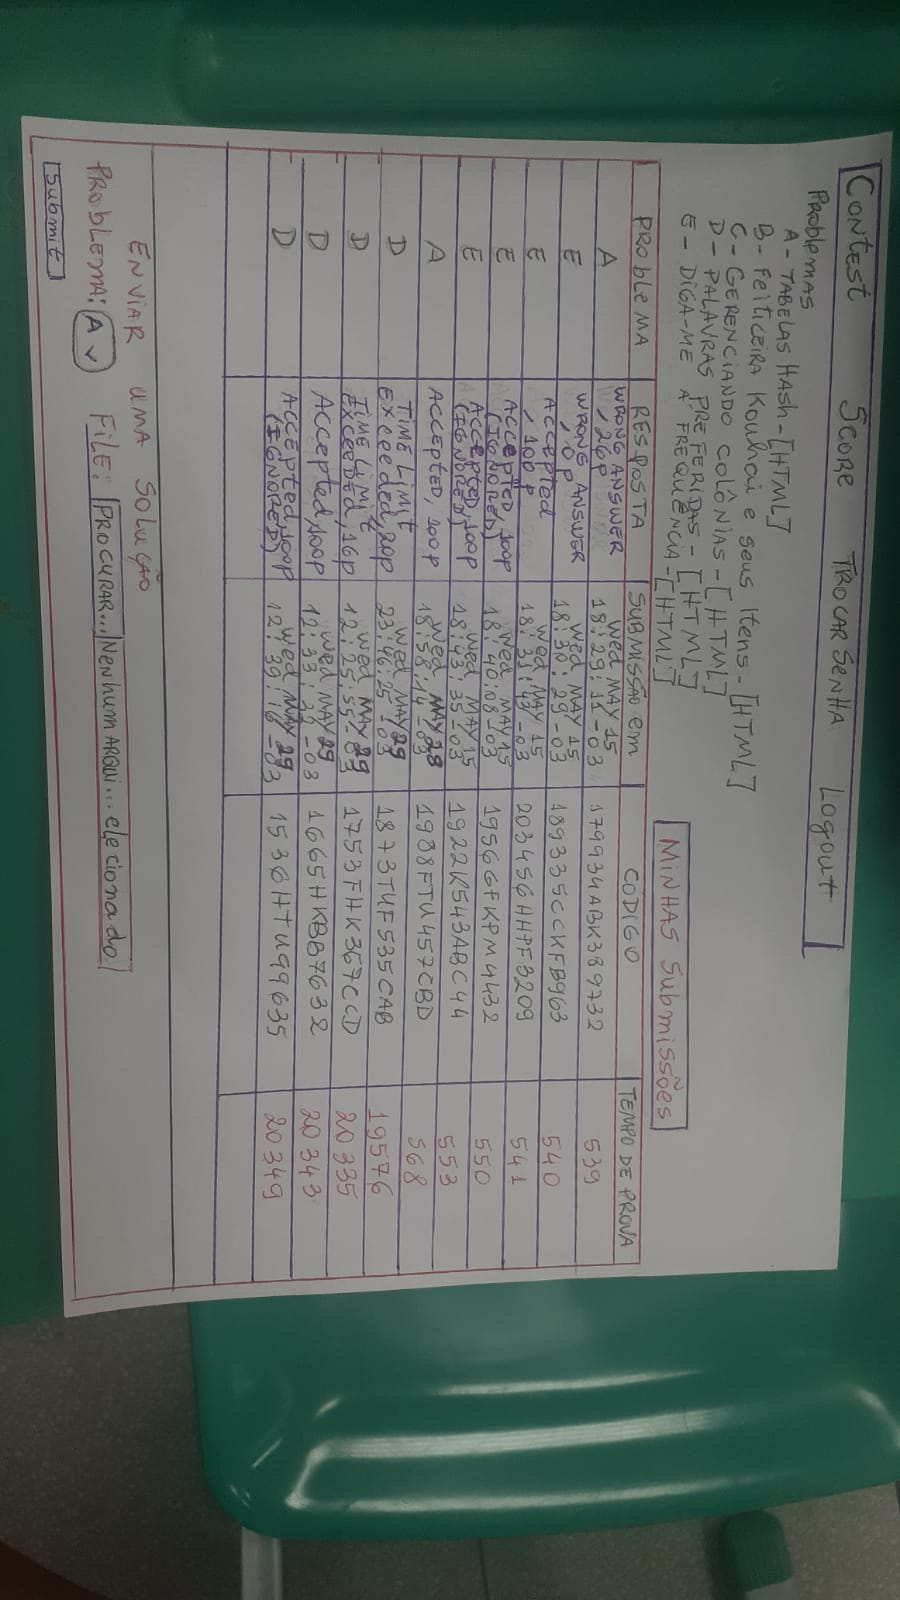 Contest Score TROCAR SENHA Logout
PROblemAS
A - TABELAS HASH - [HTML]
B - Feiticeira Kouhai e seus Itens - [HTML]
C - GERENCIANDO COLÔNIAS - [HTML]
D - PALAVRAS PREFERIDAS - [HTML]
E - DIGA-ME A FREQUÊNCIA - [HTML]
MINHAS Submissões
PROBlEMA RESPOSTA SUBMISSÃO em CÓDIGO TEMPO DE PROVA
A WRONG ANSWER, 26p WED MAY 15 18:29:11-03 179934ABK389732 539
E WRONG ANSWER, 0p WED MAY 15 18:30:29-03 189335CCKFB963 540
E Accepted, 100p WED MAY 15 18:31:42-03 203456HHPF3209 541
E Accepted, 100p (IGNORED) WED MAY 15 18:40:08-03 1956GFKPM4432 550
E Accepted, 100p (IGNORED) WED MAY 15 18:43:35-03 1922K543ABC44 553
A Accepted, 100p WED MAY 28 18:58:14-03 1988FTU457CBD 568
D TIME LIMIT Exceeded, 20p WED MAY 29 23:46:25-03 1873TUF535CAB 19576
D TIME LIMIT EXCEEDED, 16p WED MAY 29 12:25:55-03 1753FHK367CCD 20335
D Accepted, 100p WED MAY 29 12:33:26-03 1665HKBB7632 20343
D Accepted, 100p (IGNORED) WED MAY 29 12:39:16-03 1536HTU99635 20349
ENVIAR UMA SOLUÇÃO
PROBlEMA: A FILE: PROCURAR... Nenhum ARQUI...elecionado.
Submit